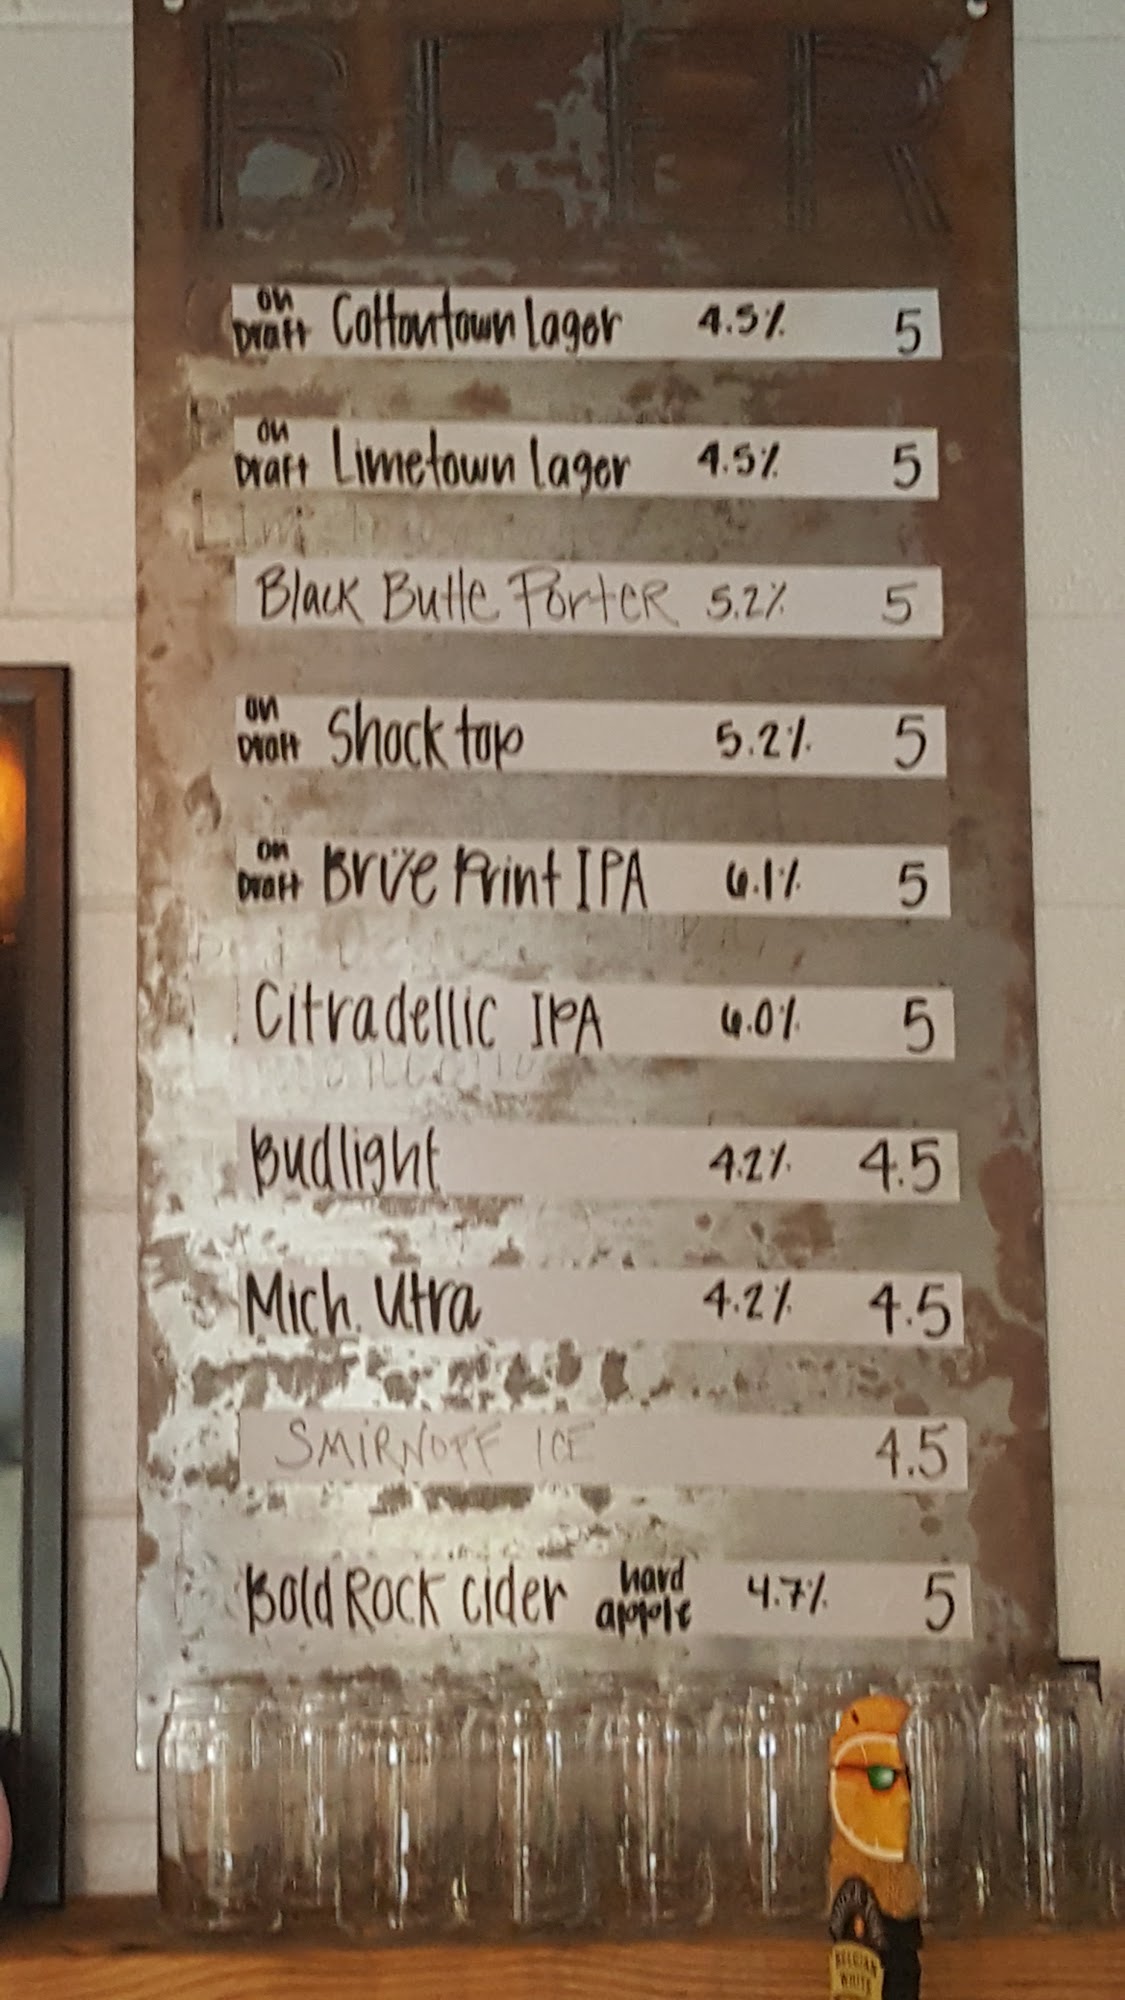 BEER
on Draft Cottontown lager 4.5% 5
on Draft Limetown lager 4.5% 5
Black Butte Porter 5.2% 5
on Draft Shock top 5.2% 5
on Draft Brüe Print IPA 6.1% 5
Citradellic IPA 6.0% 5
Budlight 4.2% 4.5
Mich. Utra 4.2% 4.5
SMIRNOFF ICE 4.5
Bold Rock cider hard apple 4.7% 5
BELGIAN
WHITE